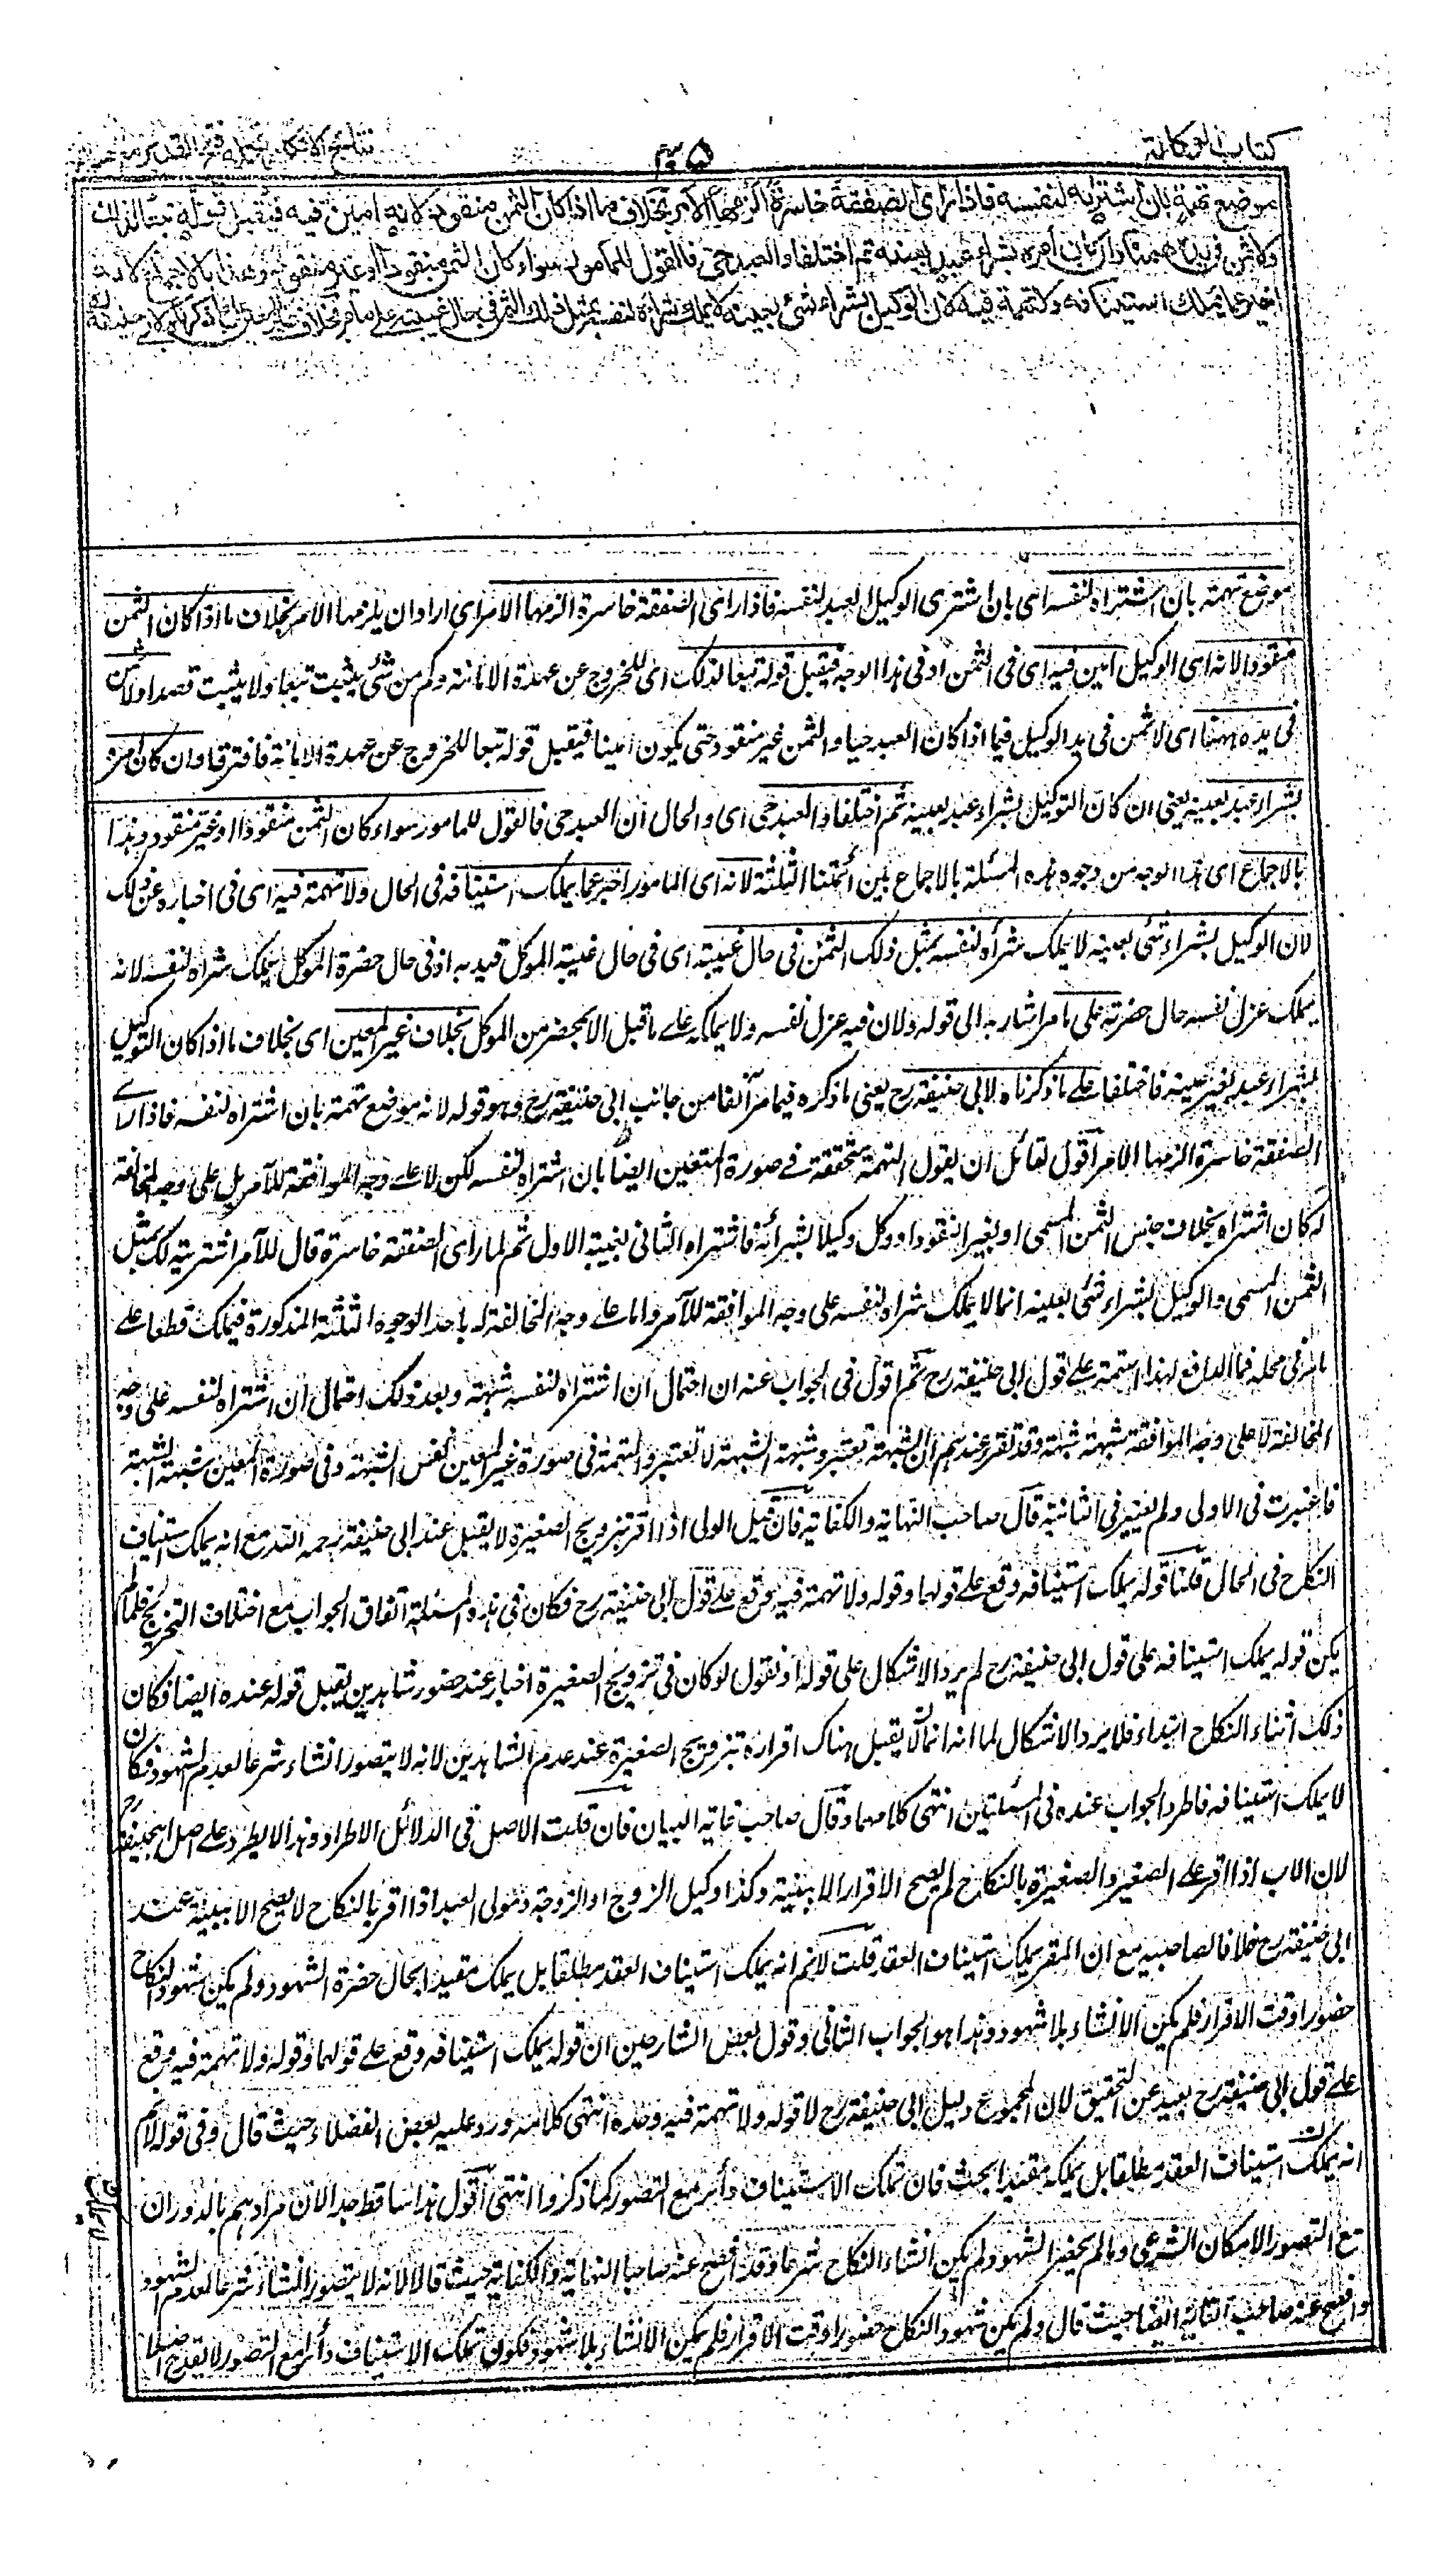 كتاب الوكالة
نتائج الافكار تكملة فتح القدير مع هداية
موضع تهمة بان اشتراه لنفسه فاذا راى الصفقة خاسرة الزمها الآمر بخلاف ما اذا كان الثمن منقودا لانه امين فيه فيقبل قوله تبعا لذلك
ولا ثمن في يده ههنا وان كان امره بشراء عبد بعينه ثم اختلفا والعبد حى فالقول للمامور سواء كان الثمن منقودا او غير منقود وهذا بالاجماع لانه
اخبر عما يملك استينافه ولا تهمة فيه لان الوكيل بشراء شئ بعينه لا يملك شراءه لنفسه بمثل ذلك الثمن في حال غيبته على ما مر بخلاف غير المعين على ما ذكرناه لابى حنيفة
موضع تهمة بان اشتراه لنفسه اى بان اشترى الوكيل العبد لنفسه فاذا راى الصفقة خاسرة الزمها الآمر اى اراد ان يلزمها الآمر بخلاف ما اذا كان الثمن
منقودا لانه اى الوكيل امين فيه اى فى الثمن او فى هذا الوجه فيقبل قوله تبعا لذلك اى للخروج عن عهدة الامانة وكم من شئ يثبت تبعا ولا يثبت قصدا ولا ثمن
فى يده ههنا اى لا ثمن فى يد الوكيل فيما اذا كان العبد حيا والثمن غير منقود حتى يكون امينا فيقبل قوله تبعا للخروج عن عهدة الامانة فافترقا وان كان امره
بشراء عبد بعينه يعنى ان كان التوكيل بشراء عبد بعينه ثم اختلفا والعبد حى اى والحال ان العبد حى فالقول للمامور سواء كان الثمن منقودا او غير منقود وهذا
بالاجماع اى هذا الوجه من وجوه هذه المسئلة بالاجماع بين ائمتنا الثلثة لانه اى المامور اخبر عما يملك استينافه فى الحال ولا تهمة فيه اى فى اخباره عن ذلك
لان الوكيل بشراء شئ بعينه لا يملك شراه لنفسه بمثل ذلك الثمن فى حال غيبته اى فى حال غيبة الموكل قيد به اذ فى حال حضرة الموكل يملك شراه لنفسه لانه
يملك عزل نفسه حال حضرته على ما مر اشار به الى قوله ولان فيه عزل نفسه ولا يملكه على ما قيل الا بمحضر من الموكل بخلاف غير المعين اى بخلاف ما اذا كان التوكيل
بشراء عبد بغير عينه فاختلفا على ما ذكرناه لابى حنيفة رح يعنى ما ذكره فيما مر آنفا من جانب ابى حنيفة رح وهو قوله لانه موضع تهمة بان اشتراه لنفسه فاذا راى
الصفقة خاسرة الزمها الآمر اقول لقائل ان يقول التهمة متحققة فى صورة التعيين ايضا بان اشتراه لنفسه لكن لا على وجه الموافقة للآمر بل على وجه المخالفة
له كان اشتراه بخلاف جنس الثمن المسمى او بغير النقود او وكل وكيلا بشرائه فاشتراه الثانى بغيبة الاول ثم لما راى الصفقة خاسرة قال للآمر اشتريته لك بمثل
الثمن المسمى والوكيل بشراء شئ بعينه انما لا يملك شراه لنفسه على وجه الموافقة للآمر واما على وجه المخالفة له باحد الوجوه الثلثة المذكورة فيملك قطعا على
ما مر فى محله فما الدافع لهذا التهمة على قول ابى حنيفة رح ثم اقول فى الجواب عنه ان احتمال ان اشتراه لنفسه شبهة وبعد ذلك احتمال ان اشتراه لنفسه على وجه
المخالفة لا على وجه الموافقة شبهة شبهة وقد تقرر عندهم ان الشبهة تعتبر وشبهة الشبهة لا تعتبر والتهمة فى صورة غير المعين نفس الشبهة وفى صورة المعين شبهة الشبهة
فاعتبرت فى الاولى ولم تعتبر فى الثانية قال صاحب النهاية والكفاية فان قيل الولى اذا اقر بتزويج الصغيرة لا يقبل عند ابى حنيفة رحمه الله مع انه يملك استيناف
النكاح فى الحال قلنا قوله يملك استينافه وقع على قولهما وقوله ولا تهمة فيه وقع على قول ابى حنيفة رح فكان فى هذه المسئلة اتفاق الجواب مع اختلاف التخريج فلما لم
يكن قوله يملك استينافه على قول ابى حنيفة رح لم يرد الاشكال على قوله او نقول لو كان فى تزويج الصغيرة اخبار عند حضور شاهدين يقبل قوله عنده ايضا فكان
ذلك انشاء النكاح ابتداء فلا يرد الاشكال لما انه انما لا يقبل هناك اقراره بتزويج الصغيرة عند عدم الشاهدين لانه لا يتصور انشاءه شرعا لعدم الشهود فكان
لا يملك استينافه فاطرد الجواب عنده فى المسئلتين انتهى كلامهما وقال صاحب غاية البيان فان قلت الاصل فى الدلائل الاطراد وهذا لا يطرد على اصل ابى حنيفة رح
لان الاب اذا اقر على الصغير والصغيرة بالنكاح لم يصح الاقرار الا ببينة وكذا وكيل الزوج او الزوجة ومولى العبد اذا اقر بالنكاح لا يصح الا ببينة عند
ابى حنيفة رح خلافا لصاحبيه مع ان المقر يملك استيناف العقد قلت لا نم انه يملك استيناف العقد مطلقا بل يملك مقيدا بحال حضرة الشهود ولم يكن شهود النكاح
حضورا وقت الاقرار فلم يكن الانشاء بلا شهود وهذا هو الجواب الثانى وقول بعض الشارحين ان قوله يملك استينافه وقع على قولهما وقوله ولا تهمة فيه وقع
على قول ابى حنيفة رح بعيد عن التحقيق لان المجموع دليل ابى حنيفة رح لا قوله ولا تهمة فيه وحده انتهى كلامه ورد عليه بعض الفضلاء حيث قال وفى قوله لا نم
انه يملك استيناف العقد مطلقا بل يملك مقيدا بحث فان تملك الاستيناف دائر مع التصور كما ذكروا انتهى اقول هذا ساقط جدا لان مرادهم بالدوران
مع التصور الامكان الشرعى وما لم يحضر الشهود لم يكن انشاء النكاح شرعا وقد افصح عنه صاحبا النهاية والكفاية حيث قالا لانه لا يتصور انشاءه شرعا لعدم الشهود
وافصح عنه صاحب الغاية ايضا حيث قال ولم يكن شهود النكاح حضورا وقت الاقرار فلم يكن الانشاء بلا شهود فكون تملك الاستيناف دائرا مع التصور لا يقدح اصلا